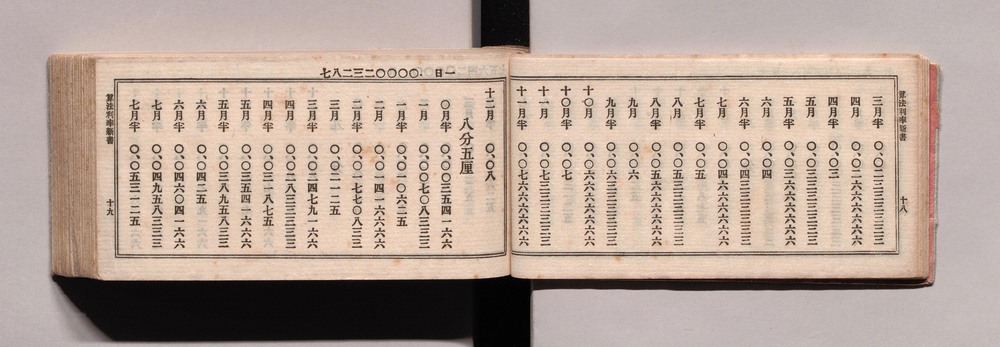 三月半 〇、〇二三三三三三三
四月 〇、〇二六六六六六六
四月半 〇、〇三
五月 〇、〇三三三三三三三
五月半 〇、〇三六六六六六六
六月 〇、〇四
六月半 〇、〇四三三三三三三
七月 〇、〇四六六六六六六
七月半 〇、〇五
八月 〇、〇五三三三三三三
八月半 〇、〇五六六六六六六
九月 〇、〇六
九月半 〇、〇六三三三三三三
十〇月 〇、〇六六六六六六六
十〇月半 〇、〇七
十一月 〇、〇七三三三三三三
十一月半 〇、〇七六六六六六六
算法利率新書
十八
一日 、〇〇〇〇二三二八七
十二月 〇、〇八
八分五厘
〇月半 〇、〇〇三五四一六六
一月 〇、〇〇七〇八三三三
一月半 〇、〇一〇六二五
二月 〇、〇一四一六六六六
二月半 〇、〇一七七〇八三三
三月 〇、〇二一二五
三月半 〇、〇二四七九一六六
四月 〇、〇二八三三三三三
四月半 〇、〇三一八七五
五月 〇、〇三五四一六六六
五月半 〇、〇三八九五八三三
六月 〇、〇四二五
六月半 〇、〇四六〇四一六六
七月 〇、〇四九五八三三三
七月半 〇、〇五三一二五
算法利率新書
十九